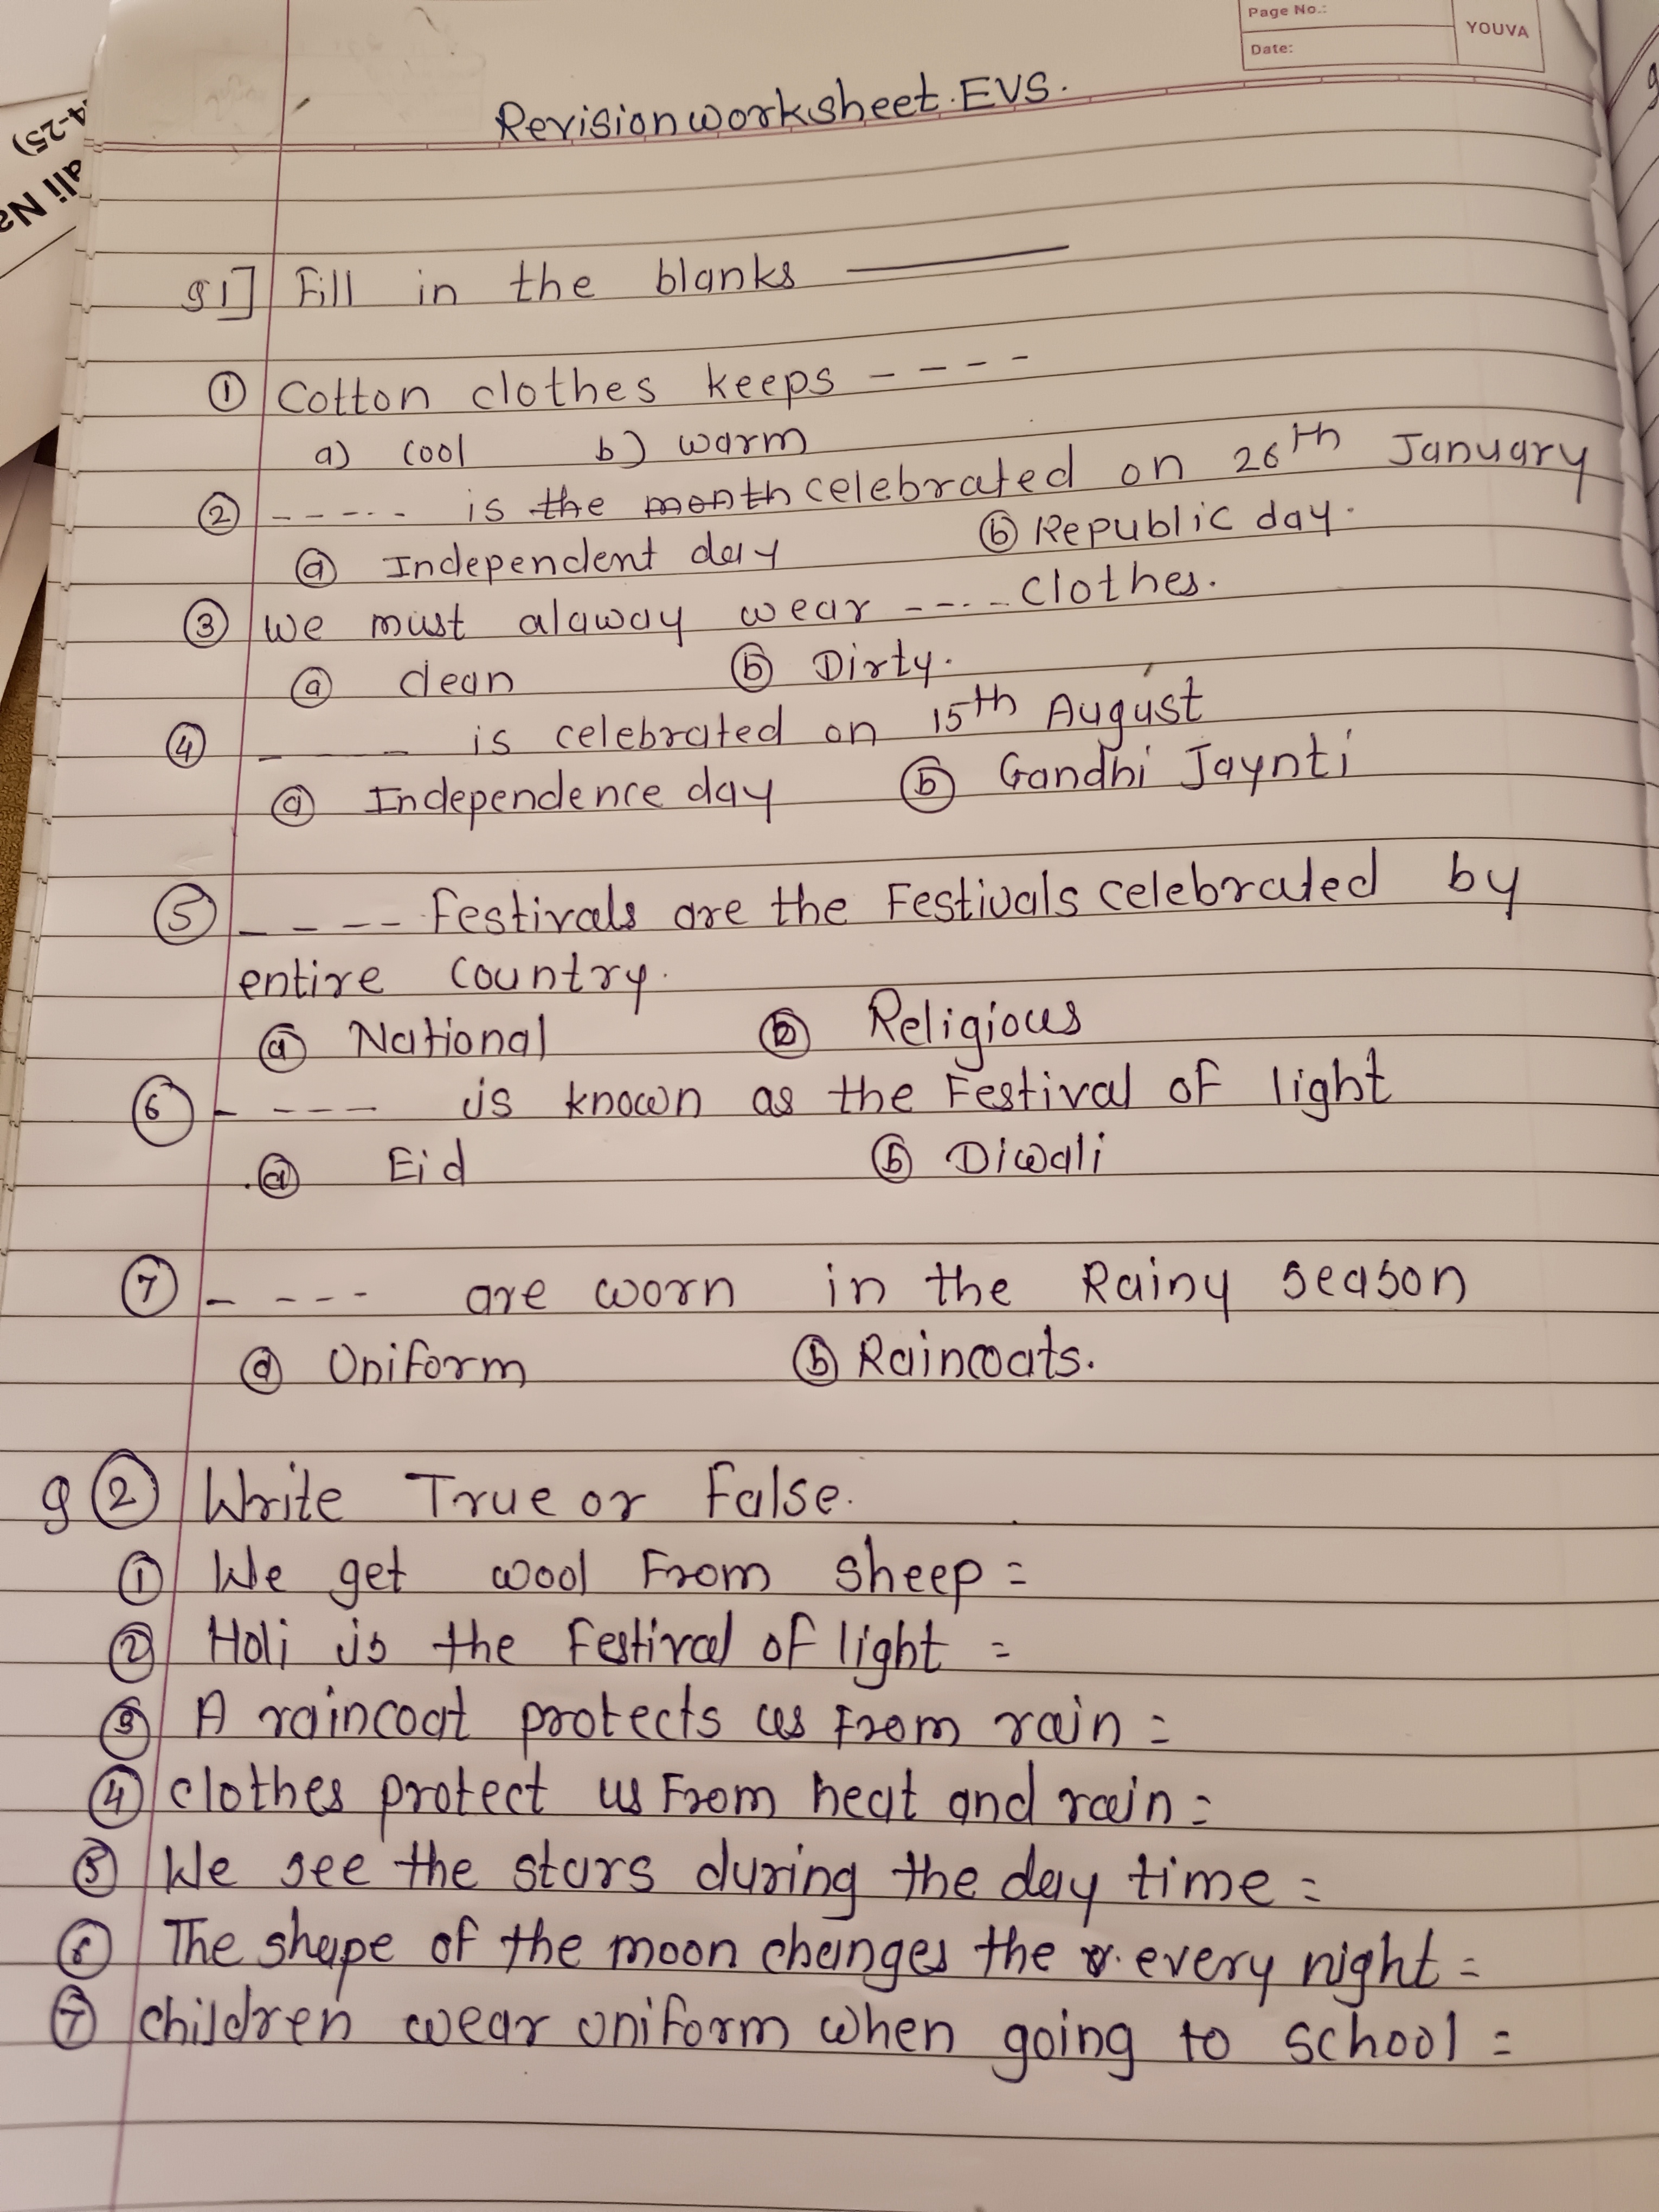 Page No.:
YOUVA
Date:
4-25)
ali Na
Revision worksheet. EVS.
Q1] Fill in the blanks
① Cotton clothes keeps ----
a) cool b) warm
② ----- is the month celebrated on 26th January
ⓐ Independent day ⓑ Republic day.
③ We must alaway wear ---- clothes.
ⓐ clean ⓑ Dirty.
④ ---- is celebrated on 15th August
ⓐ Independence day ⓑ Gandhi Jaynti
⑤ ---- Festivals are the Festivals celebrated by
entire country.
ⓐ National ⓑ Religious
⑥ ---- is known as the Festival of light
ⓐ Eid ⓑ Diwali
⑦ ---- are worn in the Rainy season
ⓐ Uniform ⓑ Raincoats.
Q② Write True or False.
① We get wool From sheep =
② Holi is the Festival of light =
③ A raincoat protects us From rain =
④ clothes protect us From heat and rain =
⑤ We see the stars during the day time =
⑥ The shape of the moon changes the every night =
⑦ children wear uniform when going to school =